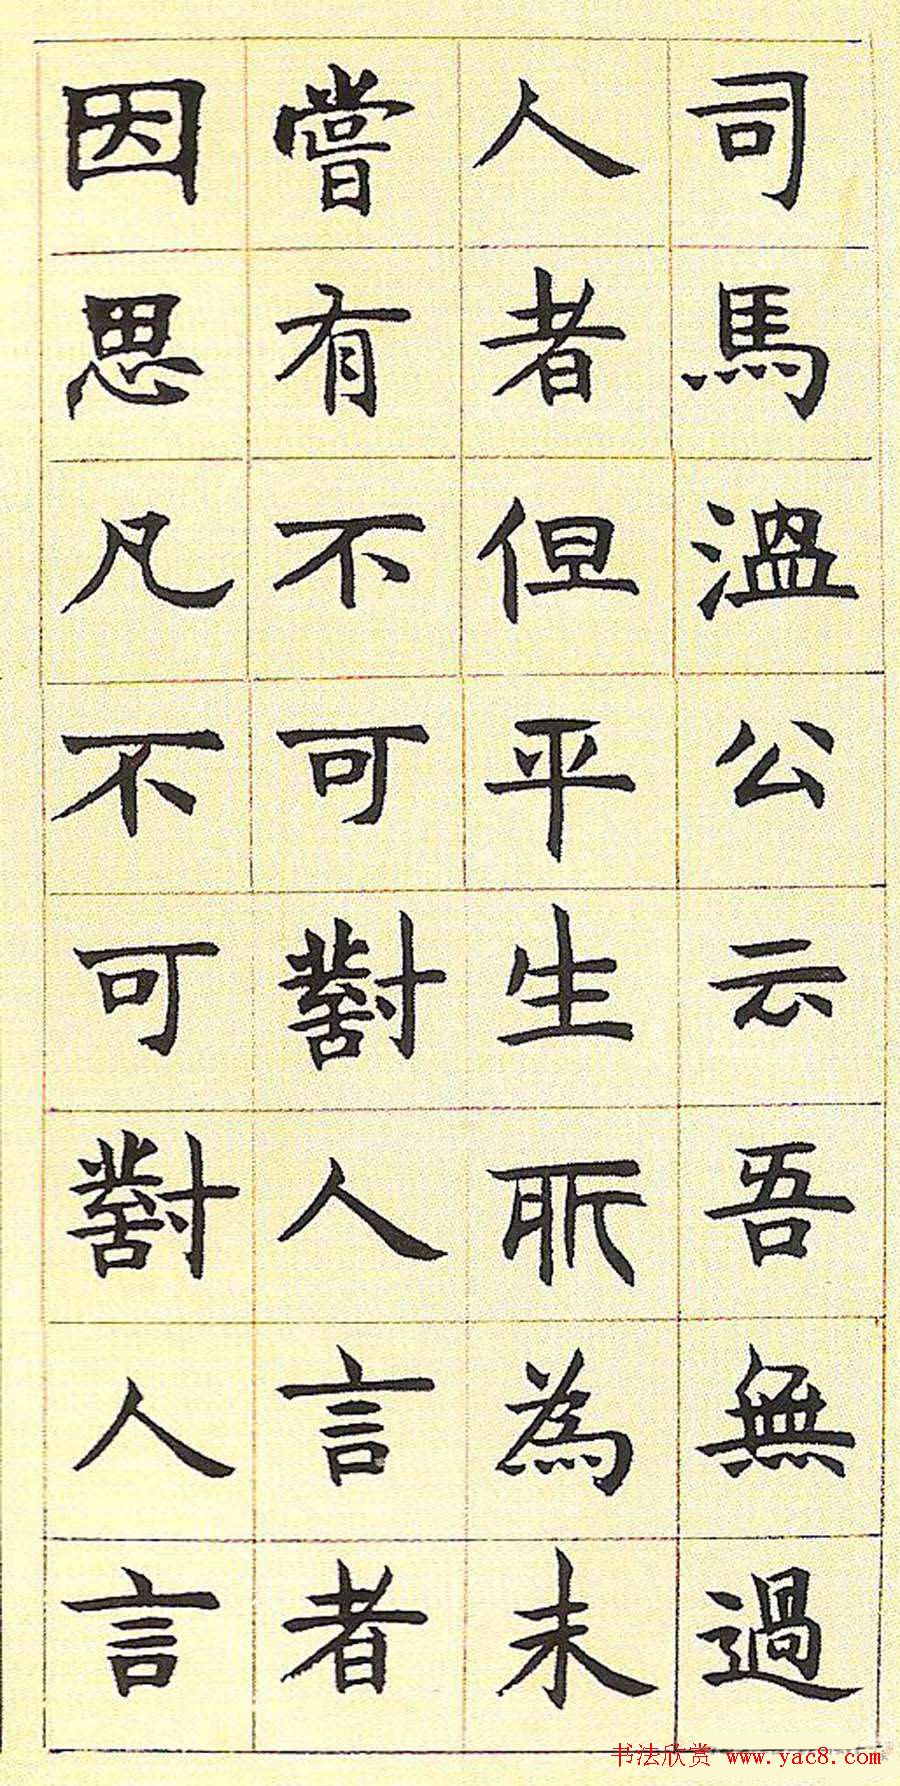 司馬溫公云吾無過
人者但平生所為未
嘗有不可對人言者
因思凡不可對人言
书法欣赏 www.yac8.com